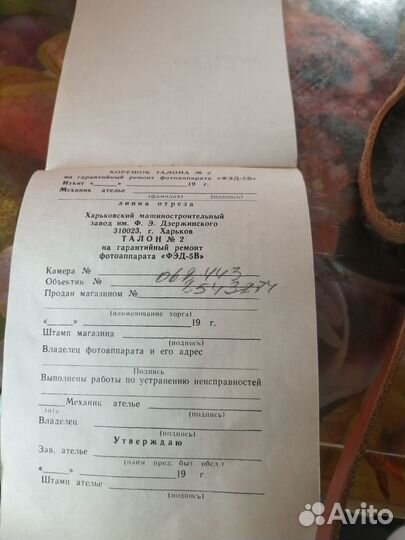 КОРЕШОК ТАЛОНА № 2
на гарантийный ремонт фотоаппарата «ФЭД-5В»
Изъят «____» ____________ 19 г.
Механик ателье
(фамилия) (подпись)
линия отреза
Харьковский машиностроительный
завод им. Ф. Э. Дзержинского
310023, г. Харьков
ТАЛОН № 2
на гарантийный ремонт
фотоаппарата «ФЭД-5В»
Камера № 062443
Объектив №
Продан магазином №
(наименование торга)
«____» ____________ 19 г.
Штамп магазина
(подпись)
Владелец фотоаппарата и его адрес
Подпись
Выполнены работы по устранению неисправностей
Механик ателье
дата (подпись)
Владелец
(подпись)
Утверждаю
Зав. ателье
(наим пред. быт обсл.)
«____» ____________ 19 г.
Штамп ателье
(подпись)
Avito